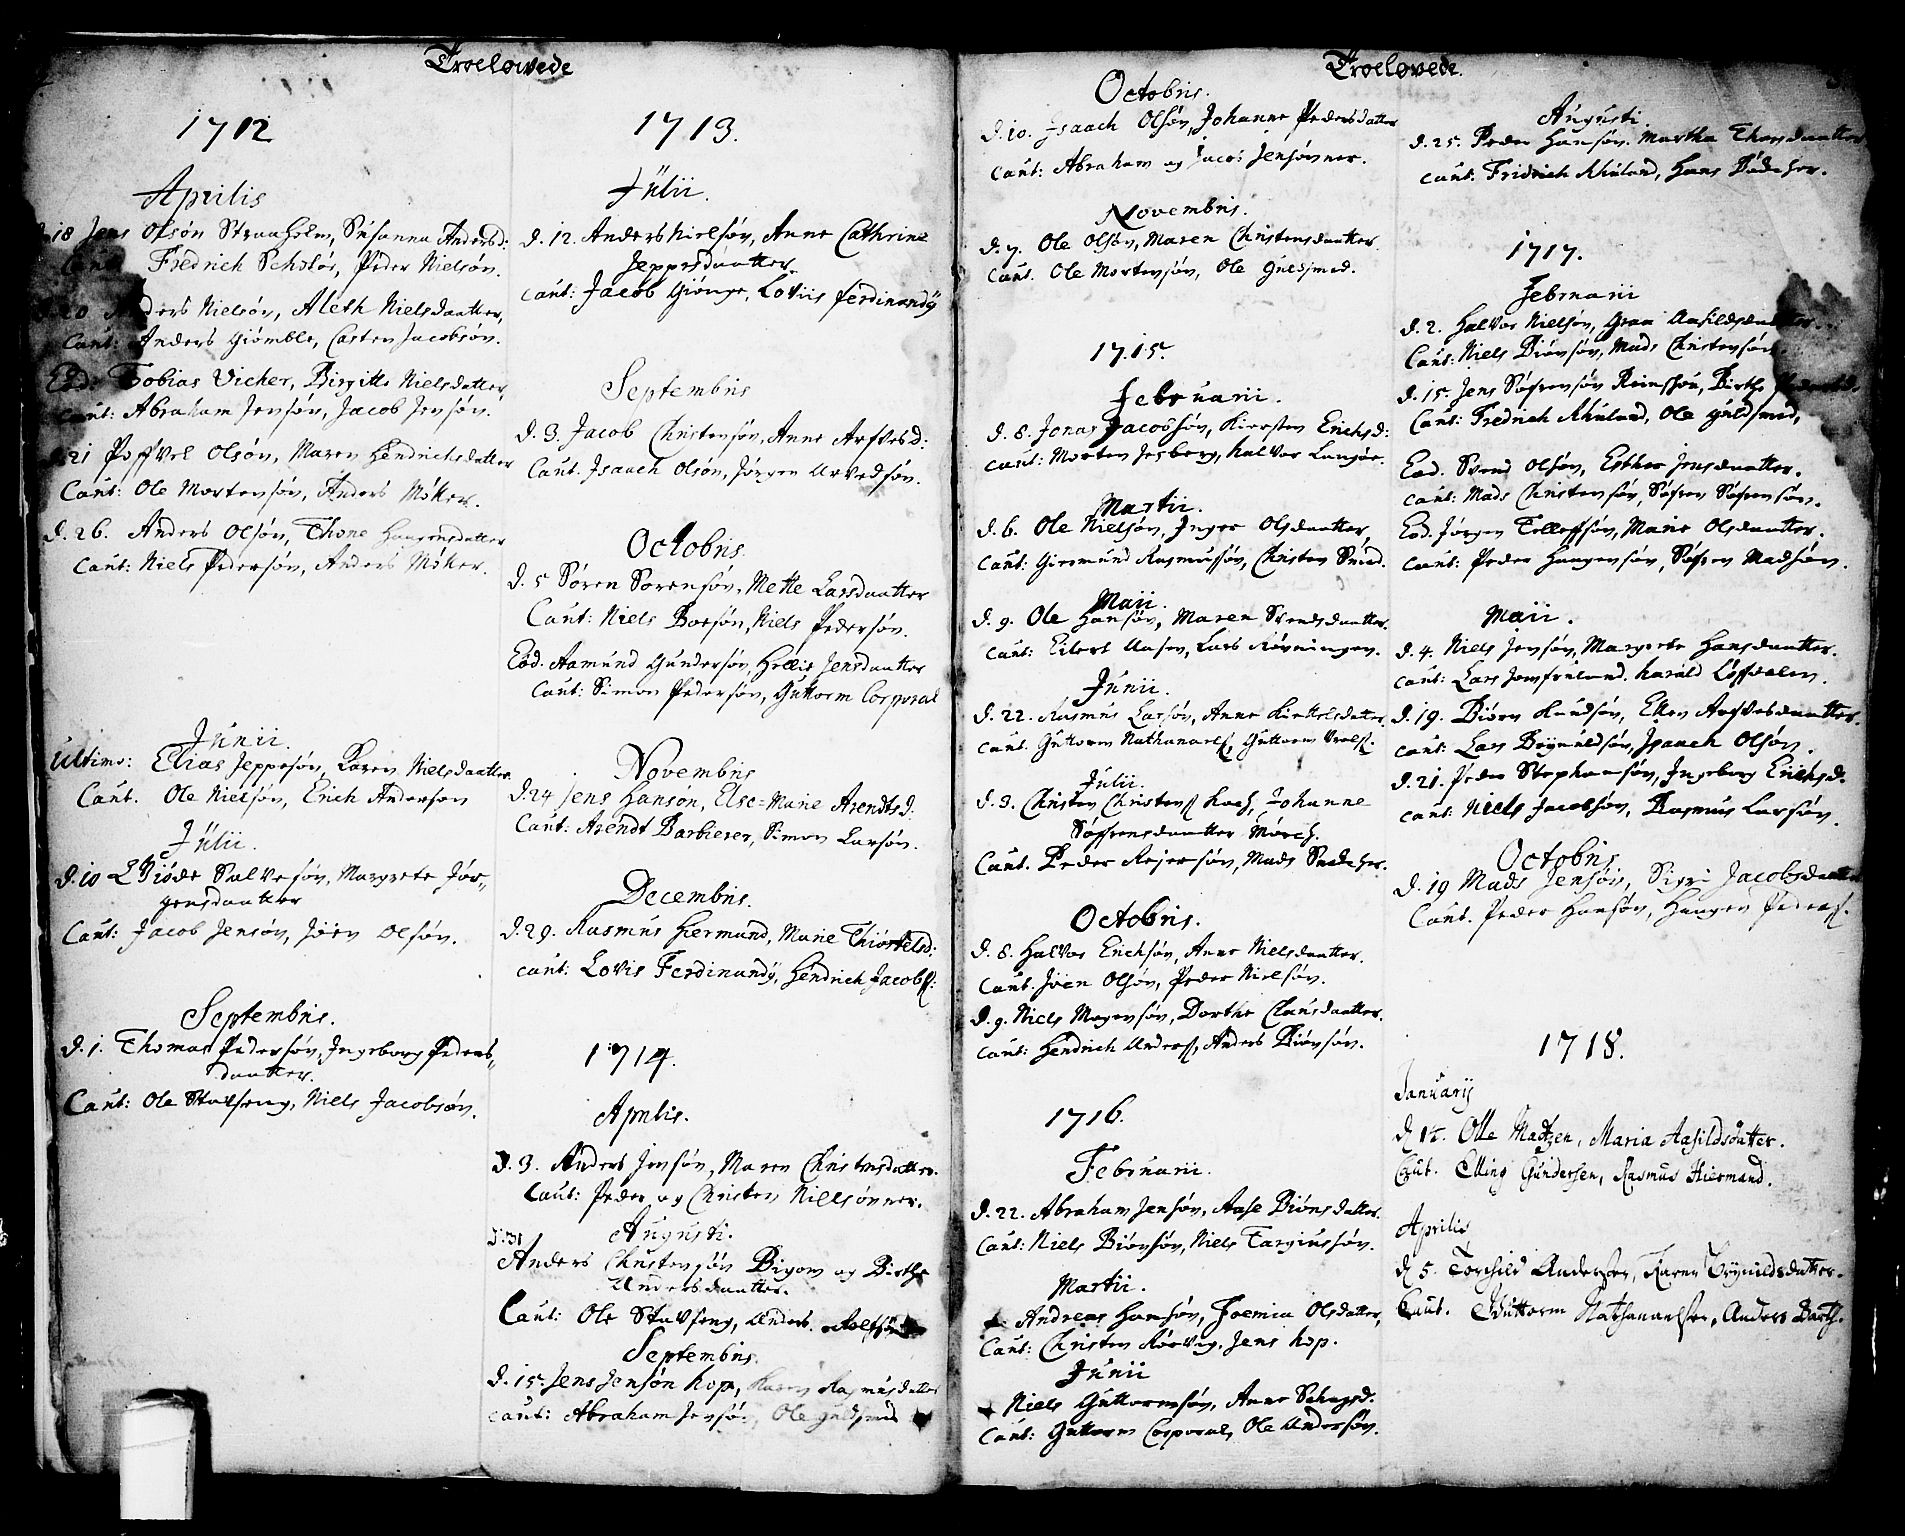 Troelovede
1712
Aprilis
d. 18 Jens Olsøn Straaholm, Susanna Andersd:
Caut: Fredrich Scholør, Peder Nielsøn.
d. 20 Anders Nielsøn, Aleth Nielsdaatter,
Caut: Anders Giømble, Casten Jacobsøn.
Eod: Tobias Vicher, Birgitte Nielsdatter,
Caut: Abraham Jensøn, Jacob Jensøn.
d. 21 Poffvel Olsøn, Maren Hendrichsdatter
Caut: Ole Mortensøn, Anders Møker.
d. 26. Anders Olsøn, Thone Haagensdatter
Caut: Niels Pedersøn, Anders Møker.
Junii.
Ultimo: Elias Jeppesøn, Karen Nielsdaatter.
Caut. Ole Nielsøn, Erich Anderson
Julii.
d. 10 Salvesøn, Margrete Jør-
gensdaatter
Caut: Jacob Jensøn, Jøen Olsøn.
Septembris.
d. 1. Thomas Pedersøn, Ingeborg Peders-
daatter.
Caut: Ole Stavseng, Niels Jacobsøn.
1713.
Julii.
d. 12. Anders Nielsøn, Anne Cathrine
Jeppesdaatter.
Caut: Jacob Giønge, Loviis Ferdinandÿ
Septembris
d. 3. Jacob Christensøn, Anne Arfvesd:
Caut. Isaach Olsøn, Jørgen Arvedsøn.
Octobris.
d. 5 Søren Sørensøn, Mette Larsdaatter
Caut: Niels Boesøn, Niels Pedersøn.
Eod. Aamund Gundersøn, Hellie Jensdaatter
Caut: Simon Pedersøn, Guttorm Corporal
Novembris
d. 24 Jens Hansøn, Else=Marie Arendtsd:
Caut: Arendt Barbierer, Simon Larsøn.
Decembris.
d. 29. Rasmus Hiermand, Marie Thiøstelsd:
Caut: Lovis Ferdinandÿ, Hendrich Jacobs:
1714.
Aprilis.
d. 3. Anders Jensøn, Maren Christensdatter.
Caut: Peder og Christen Nielsønner.
Augusti.
d. 31
Anders Christensøn Bigom og Birthe
Andersdaatter.
Caut: Ole Stavseng, Anders
Septembris.
d. 15. Jens Jensøn Hop, Karen Rasmusdatter
Caut: Abraham Jensøn, Ole Guldsmed
Troelovede.
Octobris.
d. 10. Isaach Olsøn, Johanne Pedersdatter
Caut: Abraham og Jacob Jensønner.
Novembris.
d. 7. Ole Olsøn, Maren Christensdaatter.
Caut. Ole Mortensøn, Ole Guldsmed.
1715.
Februarii.
d. 8. Jonas Jacobsøn, Kiersten Erichsd:
Caut: Morten Jesberg, Halvor Langøe.
Martii.
d. 6. Ole Nielsøn, Inger Olsdaatter,
Caut: Giermund Rasmussøn, Christen Smed.
Maii.
d. 9. Ole Hansøn, Maren Svendsdaatter.
Caut: Eilert Aasen, Lars Rønningen.
Junii.
d. 22. Rasmus Larsøn, Anne Kiettelsdatter.
Caut. Guttorm Nathanaels, Guttorm
Julii.
d. 3. Christen Christens Koch, Johanne
Søfrensdaatter Mørch.
Caut. Peder Rejersøn, Mads Snedcher.
Octobris.
d. 8. Halvor Erichsøn, Anne Nielsdaatter.
Caut. Jøen Olsøn, Peder Nielsøn.
d. 9. Niels Mogensøn, Dorthe Clausdaatter.
Caut: Hendrich Anders, Anders Biønsøn.
1716.
Februarii.
d. 22. Abraham Jensøn, Aase Biønsdatter.
Caut: Niels Biønsøn, Niels Targiussøn.
Martii.
Andreas Hansøn, Joemia Olsdatter,
Caut: Christen Rørvig, Jens Hop.
Junii
Niels Guttormsøn, Anne
Caut: Guttorm Corporal, Ole Andersøn.
Augusti.
d. 25. Peder Hansøn. Martha Thorsdaatter
Caut. Fridrich Khuland, Hans Bødcher.
1717.
Februarii
d. 2. Halvor Nielsøn, Groe Aasildsdaatter.
Caut: Niels Biønsøn, Mads Christensøn.
d. 15. Jens Søfrensøn Reimsøn, Birthe
Caut: Fredrich Khuland, Ole Guldsmed,
Eod. Svend Olsøn, Esther Jensdaatter.
Caut: Mads Christensøn, Søfren Søfrensøn.
Eod. Jørgen Telleffsøn, Marie Olsdaatter.
Caut: Peder Haagensøn, Søfren Madsøn.
Maii.
d. 4. Niels Jensøn, Margrete Hansdaatter.
Caut: Lars Jomfruland. Harald Løffdalen.
d. 19. Biørn Knudsøn, Ellen Arfvesdaatter.
Caut: Lars Bøyuldsøn, Isaach Olsøn.
d. 21. Peder Stephansøn, Ingeborg Erichsd.
Caut: Niels Jacobsøn, Rasmus Larsøn.
Octobris
d. 19 Mads Jensøn, Sigri Jacobsdaatter
Caut. Peder Hansøn, Haagen Peders.
1718.
Januarij
d 12. Olle Madtzen, Maria Aasildsdatter.
Caut. Elling Gundersen, Rasmus Hiermand.
Aprilis
d 5. Torchild Andersen, Karen Brynildsdatter.
Caut. Guttorm Nathanaelsen, Anders Barth.